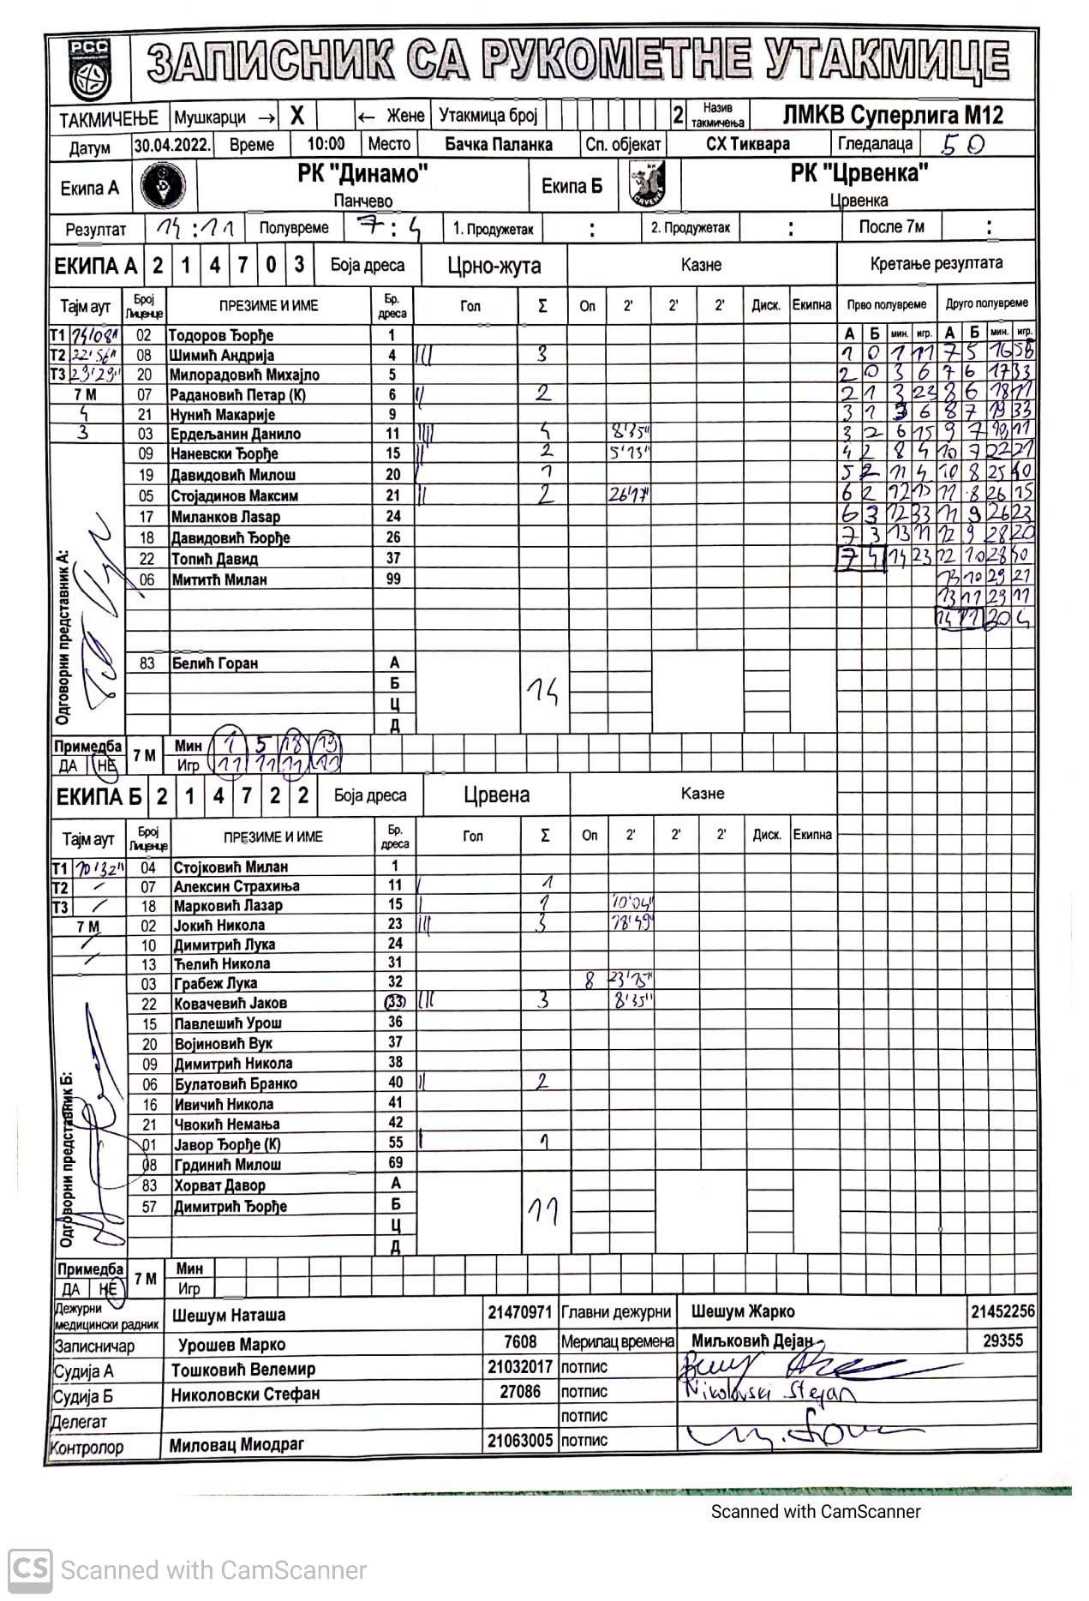 РСС
ЗАПИСНИК СА РУКОМЕТНЕ УТАКМИЦЕ
ТАКМИЧЕЊЕ Мушкарци → X ← Жене Утакмица број 2 Назив такмичења ЛМКВ Суперлига М12
Датум 30.04.2022. Време 10:00 Место Бачка Паланка Сп. објекат СХ Тиквара Гледалаца 50
Екипа А РК "Динамо" Панчево Екипа Б РК "Црвенка" Црвенка
Резултат 14:11 Полувреме 7:4 1. Продужетак : 2. Продужетак : После 7м :
ЕКИПА А 2 1 4 7 0 3 Боја дреса Црно-жута Казне Кретање резултата
Тајм аут Број Лиценце ПРЕЗИМЕ И ИМЕ Бр. дреса Гол Σ Оп 2' 2' 2' Диск. Екипна Прво полувреме Друго полувреме
А Б мин. игр. А Б мин. игр.
Т1 14'08" 02 Тодоров Ђорђе 1
Т2 22'56" 08 Шимић Андрија 4 ||| 3 1 0 1 11 7 5 16 56
Т3 29'29" 20 Милорадовић Михајло 5 2 0 3 6 7 6 17 33
7 М 07 Радановић Петар (К) 6 || 2 2 1 3 23 8 6 18 11
4 21 Нунић Макарије 9 3 1 3 6 8 7 19 33
3 03 Ердељанин Данило 11 |||| 4 8'35" 3 2 6 15 9 7 11
09 Наневски Ђорђе 15 || 2 5'13" 4 2 8 4 10 7 22 21
19 Давидовић Милош 20 1 5 2 11 4 10 8 25 40
05 Стојадинов Максим 21 || 2 26'17" 6 2 12 15 11 8 26 15
17 Миланков Лазар 24 6 3 12 33 11 9 26 23
18 Давидовић Ђорђе 26 7 3 13 11 12 9 28 20
22 Топић Давид 37 7 4 14 23 12 10 28 40
06 Мититћ Милан 99 13 10 29 21
13 11 29 11
14 11 30 4
83 Белић Горан А
Б 14
Ц
Д
Одговорни представник А:
Примедба 7 М Мин 1 5 18 19
ДА НЕ Игр 11 11 11 11
ЕКИПА Б 2 1 4 7 2 2 Боја дреса Црвена Казне
Тајм аут Број Лиценце ПРЕЗИМЕ И ИМЕ Бр. дреса Гол Σ Оп 2' 2' 2' Диск. Екипна
Т1 10'32" 04 Стојковић Милан 1
Т2 / 07 Алексин Страхиња 11 | 1
Т3 / 18 Марковић Лазар 15 | 1 10'04"
7 М 02 Јокић Никола 23 ||| 3 18'49"
/ 10 Димитрић Лука 24
/ 13 Ћелић Никола 31
03 Грабеж Лука 32 8 23'15"
22 Ковачевић Јаков (33) ||| 3 8'35"
15 Павлешић Урош 36
20 Војиновић Вук 37
09 Димитрић Никола 38
06 Булатовић Бранко 40 || 2
16 Ивичић Никола 41
21 Чвокић Немања 42
01 Јавор Ђорђе (К) 55 | 1
08 Грдинић Милош 69
83 Хорват Давор А
57 Димитрић Ђорђе Б 11
Ц
Д
Одговорни представник Б:
Примедба 7 М Мин
ДА НЕ Игр
Дежурни медицински радник Шешум Наташа 21470971 Главни дежурни Шешум Жарко 21452256
Записничар Урошев Марко 7608 Мерилац времена Миљковић Дејан 29355
Судија А Тошковић Велемир 21032017 потпис
Судија Б Николовски Стефан 27086 потпис Nikolovski Stefan
Делегат потпис
Контролор Миловац Миодраг 21063005 потпис
Scanned with CamScanner
CS Scanned with CamScanner